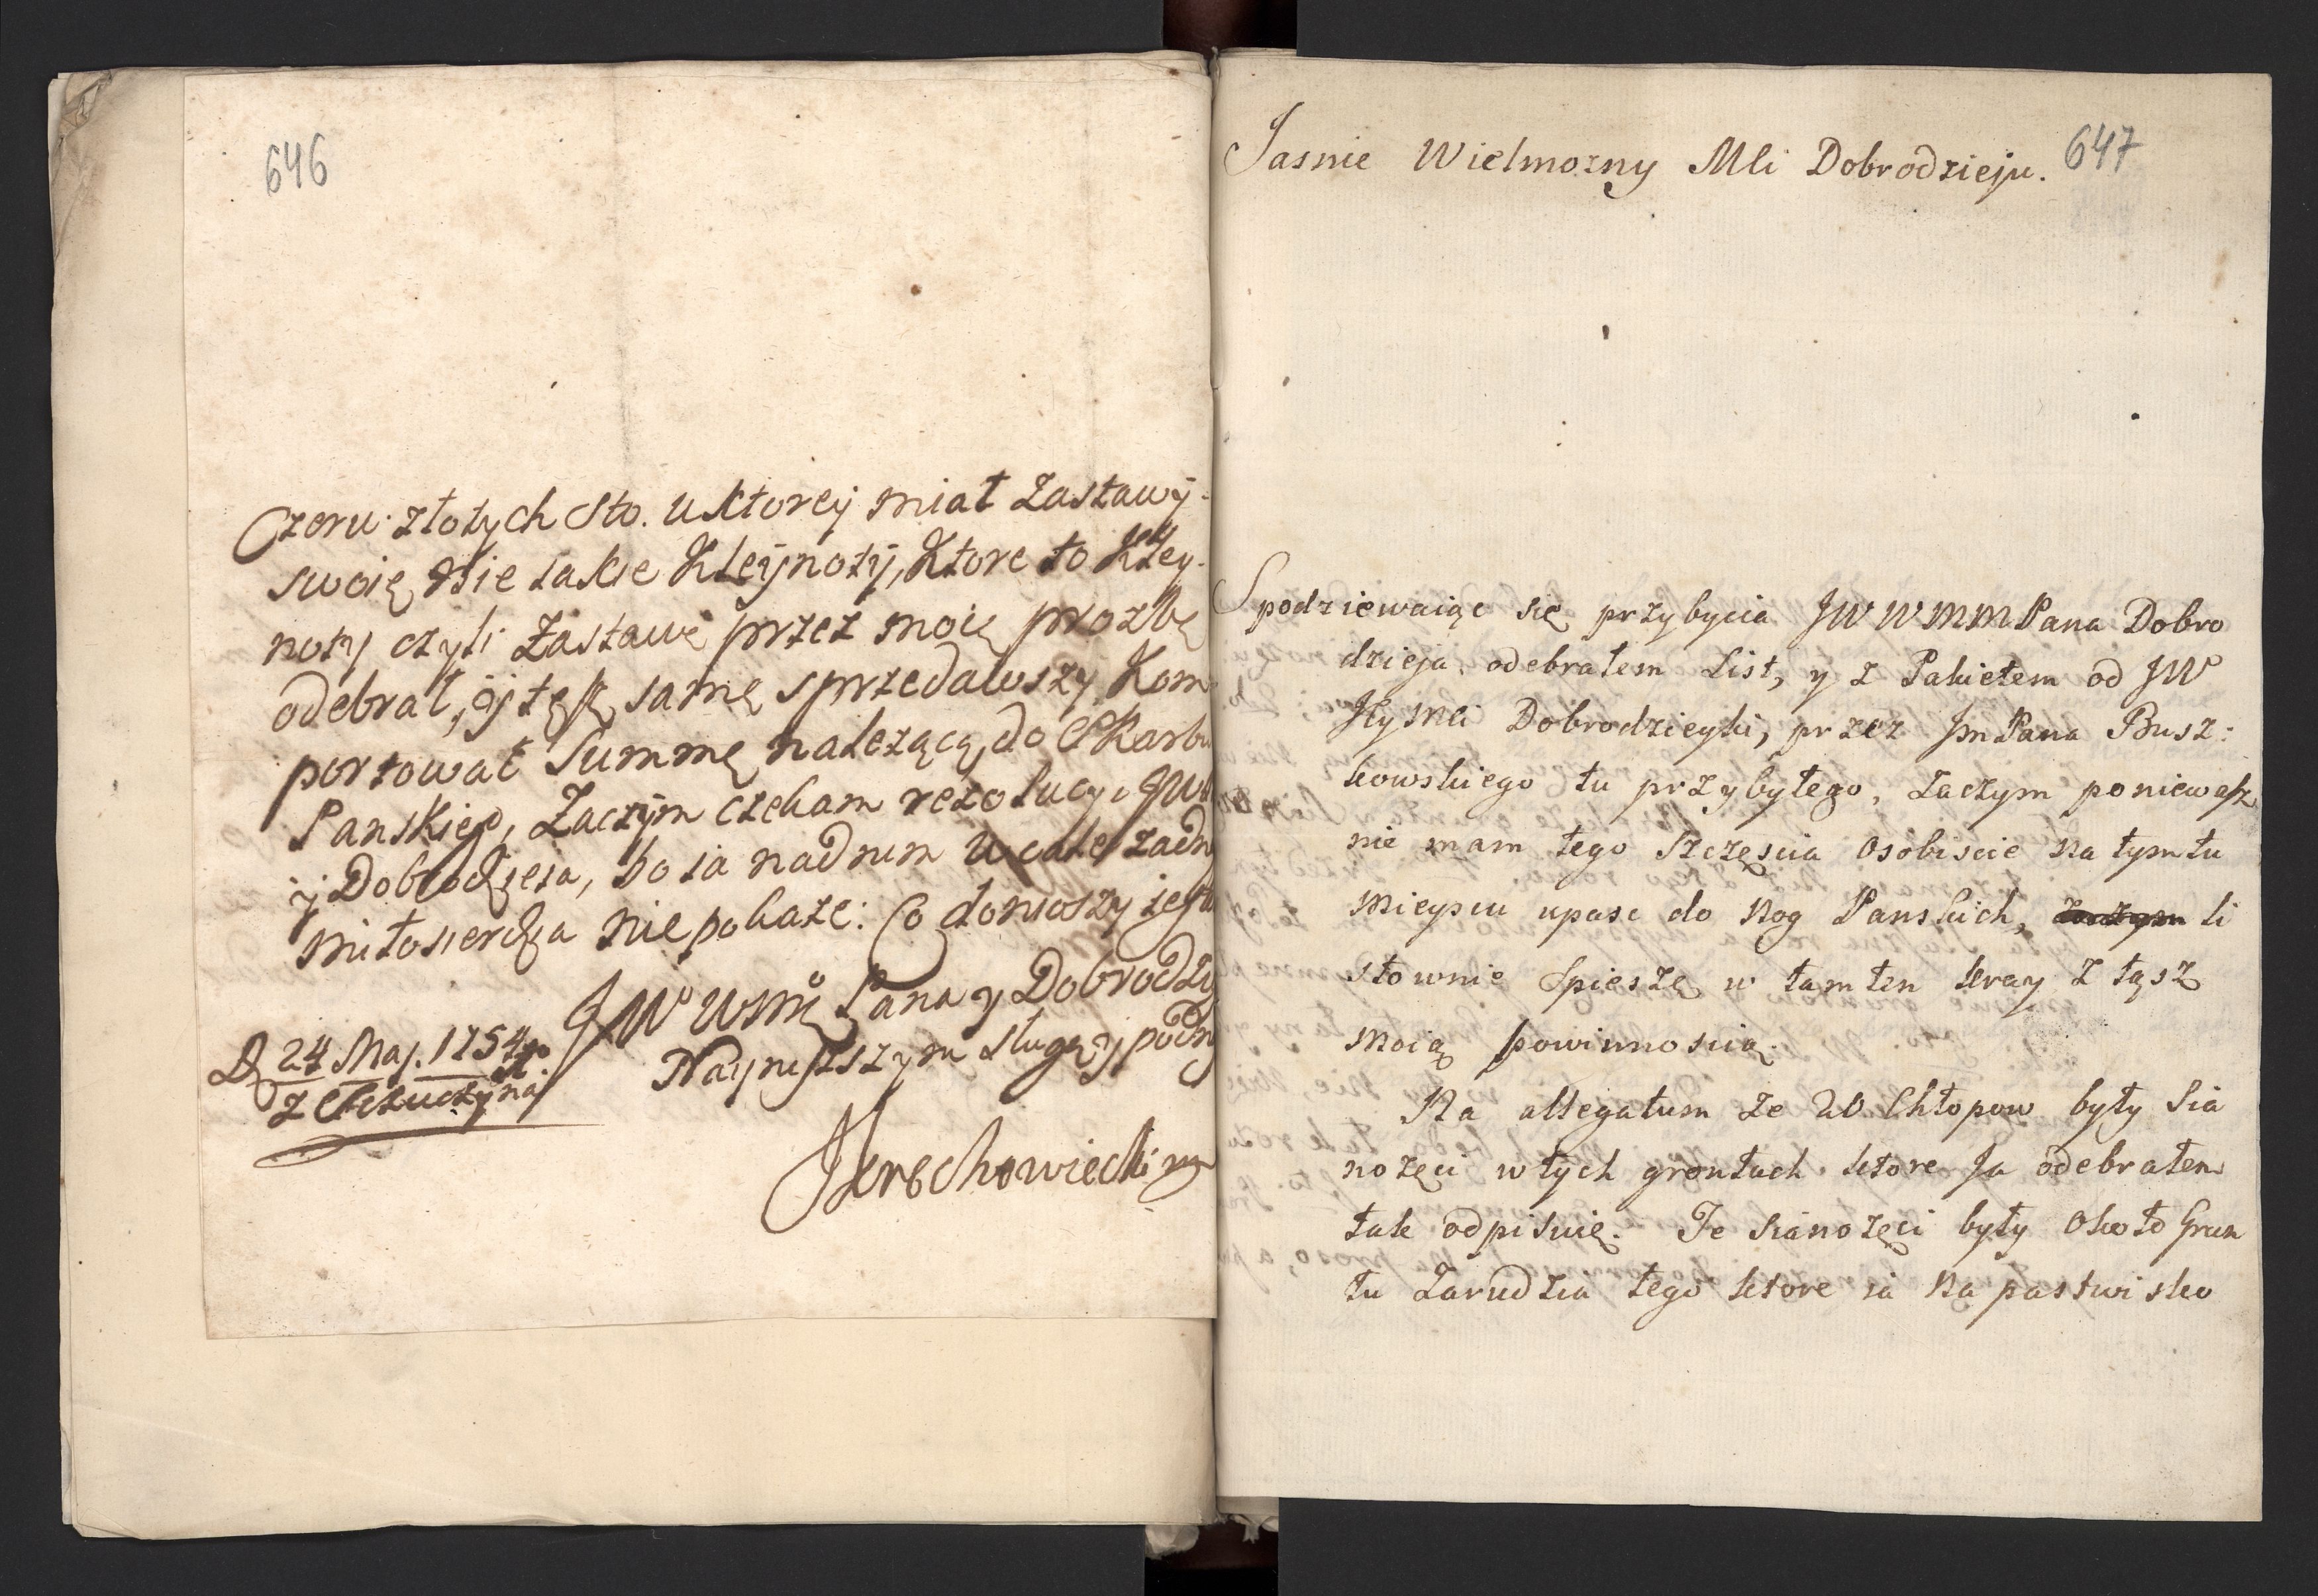 646
Czerw: złotych sto. u ktorey miał zastawy
swoię nie takie Kleynoty, Ktore to Kley-
noty czyli Zastawę przez moię prozbę
odebrał, y tęsz samę sprzedawszy Kom
portował Summę nalezącą do Skarbu
Panskiego, Zaczym czekam rezolucyi JW
y Dobrodzieia, bo ia nad nim wcale zadn
miłosierdzia nie pokaze: Co doniosszy iest
JW WMM Pana y Dobrodzi
Nayniszszym sługą y podn
D 24 Maj. 1754
z Szczuczyna
647
Jasnie Wielmozny Mci Dobrodzieju.
Spodziewaiąc się przybycia JW WMM Pana Dobro
dzieja. odebrałem List, y z Pakietem od JW
Jeymci Dobrodzieyki, przez Jm Pana Busz:
kowskiego tu przybyłego, zaczym poniewasz
nie mam tego Szczęscia osobiscie na tym tu
mieyscu upasc do nog Panskich, zaczym li
stownie Spieszę w tamten kray z tąsz
moią powinnoscią.
Na allegatum ze 20 Chłopow były Sia
nozęci w tych grontach ktore Ja odebrałem
tak odpisuię. Te Sianozęci były około Grun
tu Zarudzia tego ktore ia na pastwisko